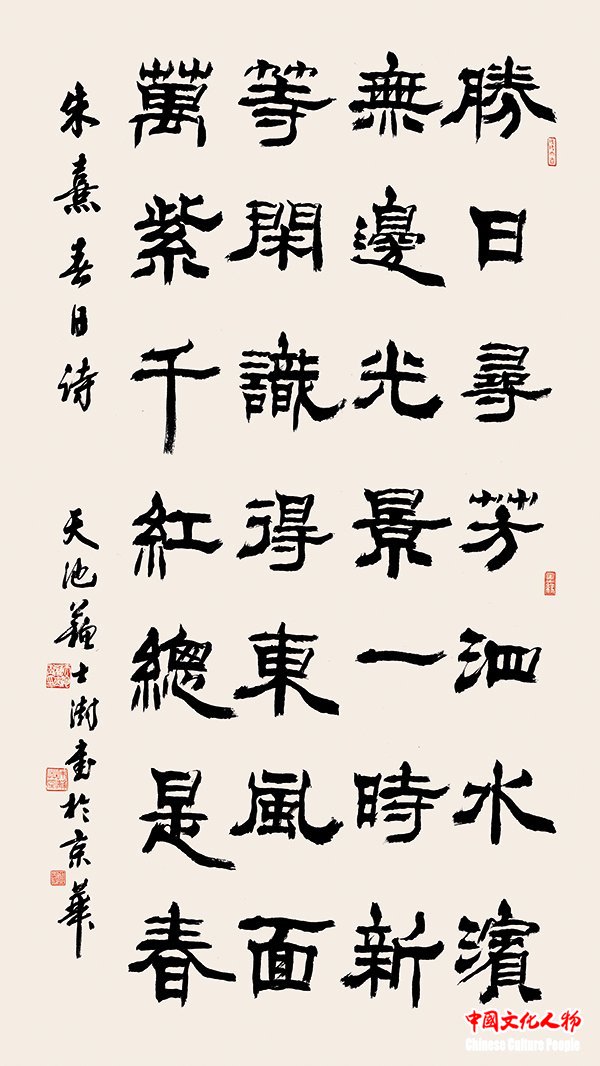 勝日尋芳泗水濱
無邊光景一時新
等閑識得東風面
萬紫千紅總是春
朱熹春日诗
天池蘇士澍书於京華
中國文化人物
Chinese Culture People